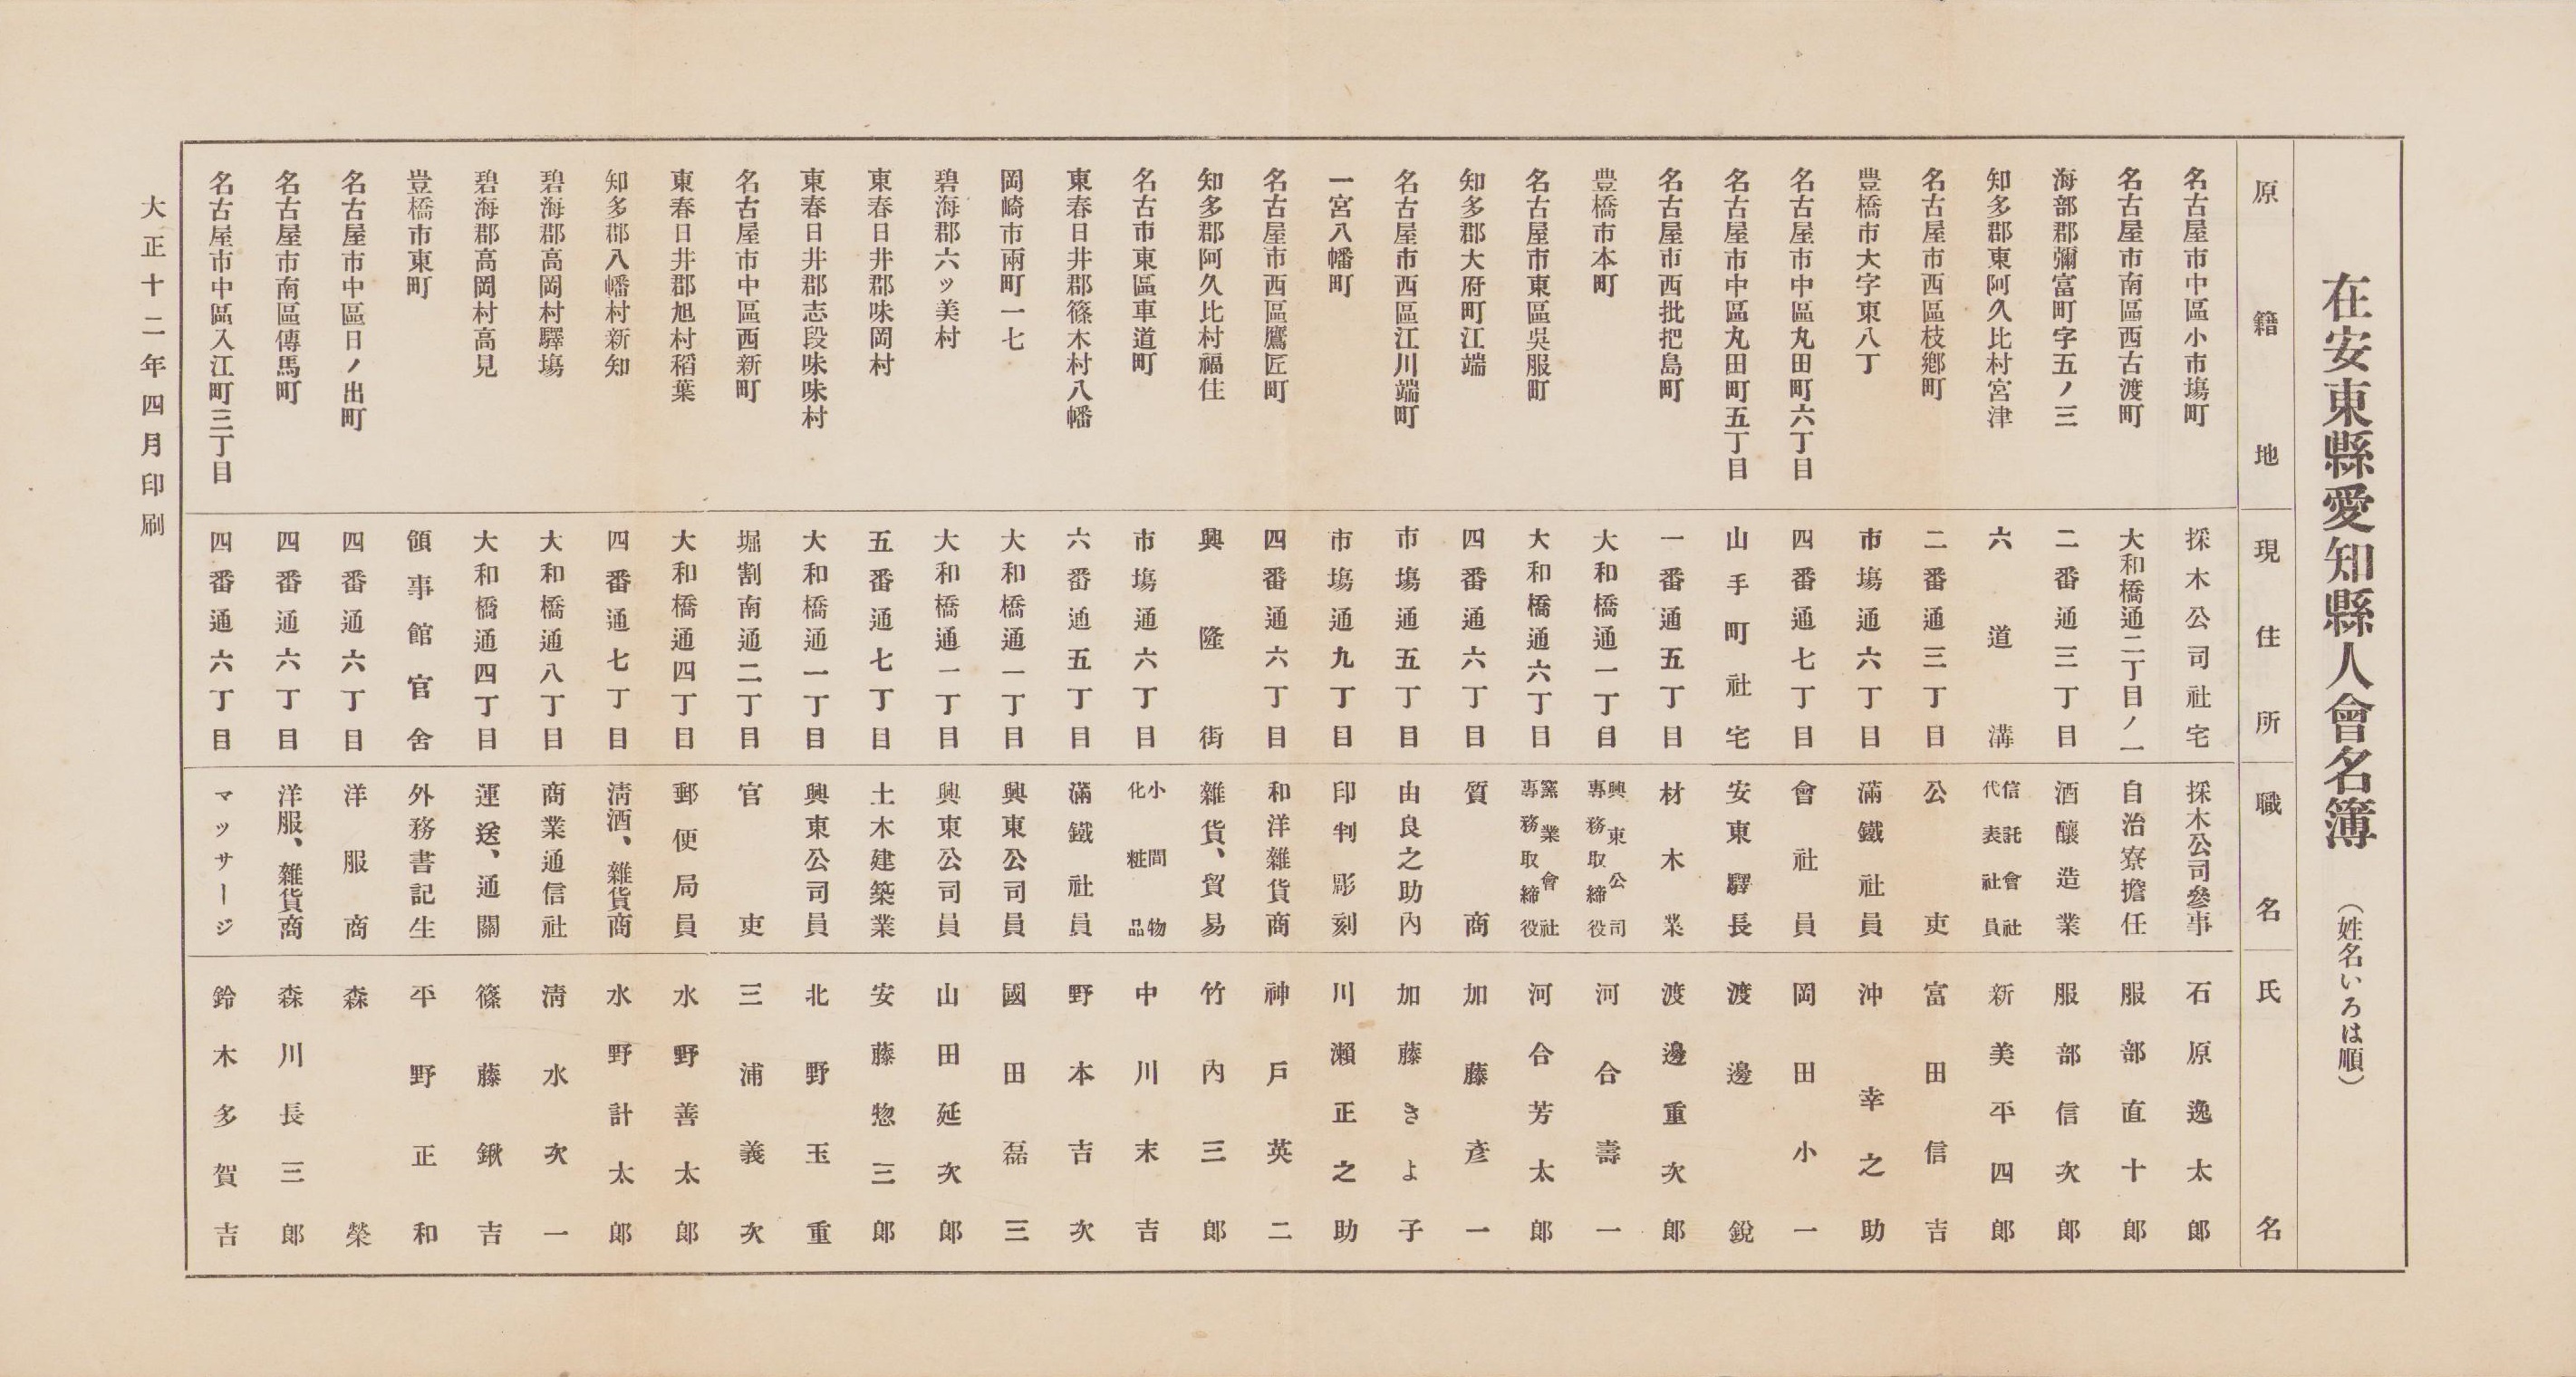 在安東縣愛知縣人會名簿 (姓名いろは順)
原籍地 現住所 職名 氏名
名古屋市中區小市塲町 採木公司社宅 採木公司參事 石原逸太郎
名古屋市南區西古渡町 大和橋通二丁目ノ一 自治寮擔任 服部直十郎
海部郡彌富町字五ノ三 二番通三丁目 酒釀造業 服部信次郎
知多郡東阿久比村宮津 六道溝 信託會社代表社員 新美平四郎
名古屋市西區枝鄕町 二番通三丁目 公吏 富田信吉
豊橋市大字東八丁 市塲通六丁目 滿鐵社員 沖幸之助
名古屋市中區丸田町六丁目 四番通七丁目 會社員 岡田小一
名古屋市中區丸田町五丁目 山手町社宅 安東驛長 渡邊銳
名古屋市西批把島町 一番通五丁目 材木業 渡邊重次郎
豊橋市本町 大和橋通一丁目 興東公司專務取締役 河合壽一
名古屋市東區吳服町 大和橋通六丁目 窯業會社專務取締役 河合芳太郎
知多郡大府町江端 四番通六丁目 質商 加藤彥一
名古屋市西區江川端町 市塲通五丁目 由良之助內 加藤きよ子
一宮八幡町 市塲通九丁目 印判彫刻 川瀨正之助
名古屋市西區鷹匠町 四番通六丁目 和洋雜貨商 神戶英二
知多郡阿久比村福住 興隆街 雜貨、貿易 竹內三郎
名古市東區車道町 市塲通六丁目 小間物化粧品 中川末吉
東春日井郡篠木村八幡 六番通五丁目 滿鐵社員 野本吉次
岡崎市兩町一七 大和橋通一丁目 興東公司員 國田磊三
碧海郡六ッ美村 大和橋通一丁目 興東公司員 山田延次郎
東春日井郡味岡村 五番通七丁目 土木建築業 安藤惣三郎
東春日井郡志段味味村 大和橋通一丁目 興東公司員 北野玉重
名古屋市中區西新町 堀割南通二丁目 官吏 三浦義次
東春日井郡旭村稻葉 大和橋通四丁目 郵便局員 水野善太郎
知多郡八幡村新知 四番通七丁目 淸酒、雜貨商 水野計太郎
碧海郡高岡村驛塲 大和橋通八丁目 商業通信社 淸水次一
碧海郡高岡村高見 大和橋通四丁目 運送、通關 篠藤鍬吉
豈橋市東町 領事館官舍 外務書記生 平野正和
名古屋市中區日ノ出町 四番通六丁目 洋服商 森榮
名古屋市南區傳馬町 四番通六丁目 洋服、雜貨商 森川長三郎
名古屋市中區入江町三丁目 四番通六丁目 マッサージ 鈴木多賀吉
大正十二年四月印刷